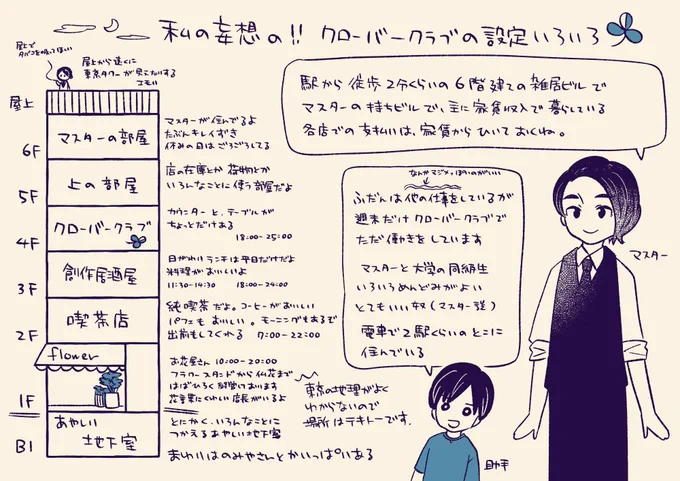 私の妄想の!! クローバークラブの設定いろいろ
屋上で
タバコを吸ってほしい
屋上から遠くに
東京タワーが見えたりする
エモい
屋上
6F
マスターの部屋
マスターが住んでるよ
たぶんキレイずき
休みの日はごろごろしてる
5F
上の部屋
店の在庫とか荷物とか
いろんなことに使う部屋だよ
4F
クローバークラブ
カウンターと、テーブルが
ちょっとだけある
18:00-25:00
3F
創作居酒屋
日がわりランチは平日だけだよ
料理がおいしいよ
11:30-14:30 18:00-24:00
2F
喫茶店
純喫茶だよ。コーヒーがおいしい
パフェもおいしい。モーニングもあるで
出前もしてくれる 7:00-22:00
1F
flower
お花屋さん 10:00-20:00
フラワースタンドから仏花まで
はばひろく取扱いあります
花言葉にくわしい店長がいるよ
B1
あやしい
地下室
とにかく、いろんなことに
つかえるあやしい地下室
まわりはのみやさんとかいっぱいある
駅から徒歩2分くらいの6階建ての雑居ビルで
マスターの持ちビルで、主に家賃収入で暮らしている
各店でのお払いは、家賃からひいておくね。
マスター
なんかマジメっぽいのがいい
ふだんは他の仕事をしているが
週末だけクローバークラブで
ただ働きをしています
マスターと大学の同級生
いろいろめんどみがよい
とてもいい奴(マスター談)
電車で2駅くらいのとこに
住んでいる
助手
東京の地理がよく
わからないので
場所はテキトーです。